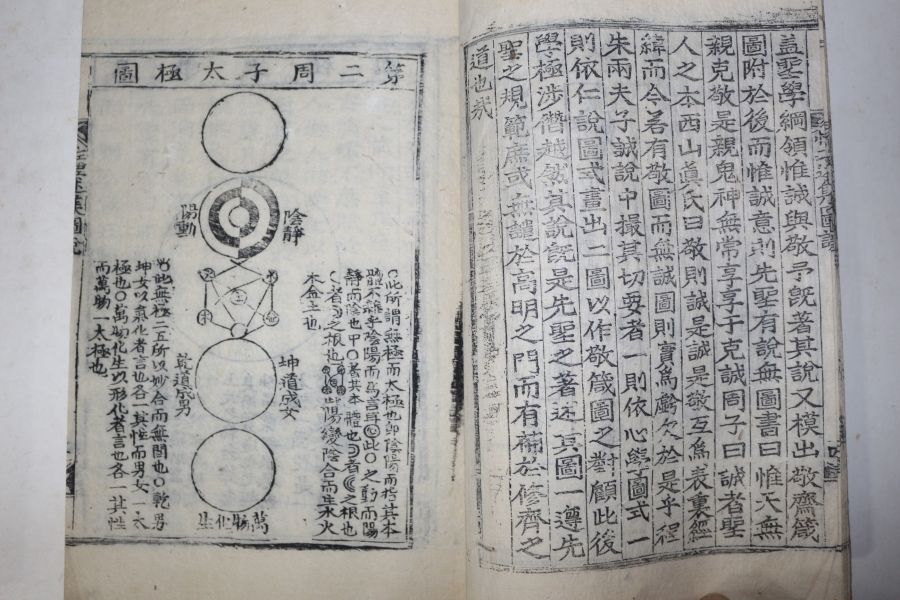 盖聖學綱領惟誠與敬予旣著其說又模出敬齋箴
圖附於後而惟誠意則先聖有說無圖書曰惟天無
親克敬是親鬼神無常享享于克誠周子曰誠者聖
人之本西山眞氏曰敬則誠是誠是敬互爲表裏經
緯而今若有敬圖而無誠圖則實爲虧欠於是乎程
朱兩夫子誠說中撮其切要者一則依心學圖式一
則依仁說圖式畫出二圖以作敬箴圖之對顧此後
學極涉僭越然其說旣是先聖之著述其圖一遵先
聖之規範庶或無譴於高明之門而有補於修齊之
道也哉
第二周子太極圖
陰靜
陽動
火
水
土
木
金
坤道成女
乾道成男
萬物化生
○此所謂無極而太極也卽陰陽而指其本
體不雜乎陰陽而爲言耳 此○之動而陽
靜而陰也中○者其本體也 者 之根也
者 之根也 此陽變陰合而生水火
木金土也
此無極二五所以妙合而無間也○乾男
坤女以氣化者言也各一其性而男女一太
極也○萬物化生以形化者言也各一其性
而萬物一太極也